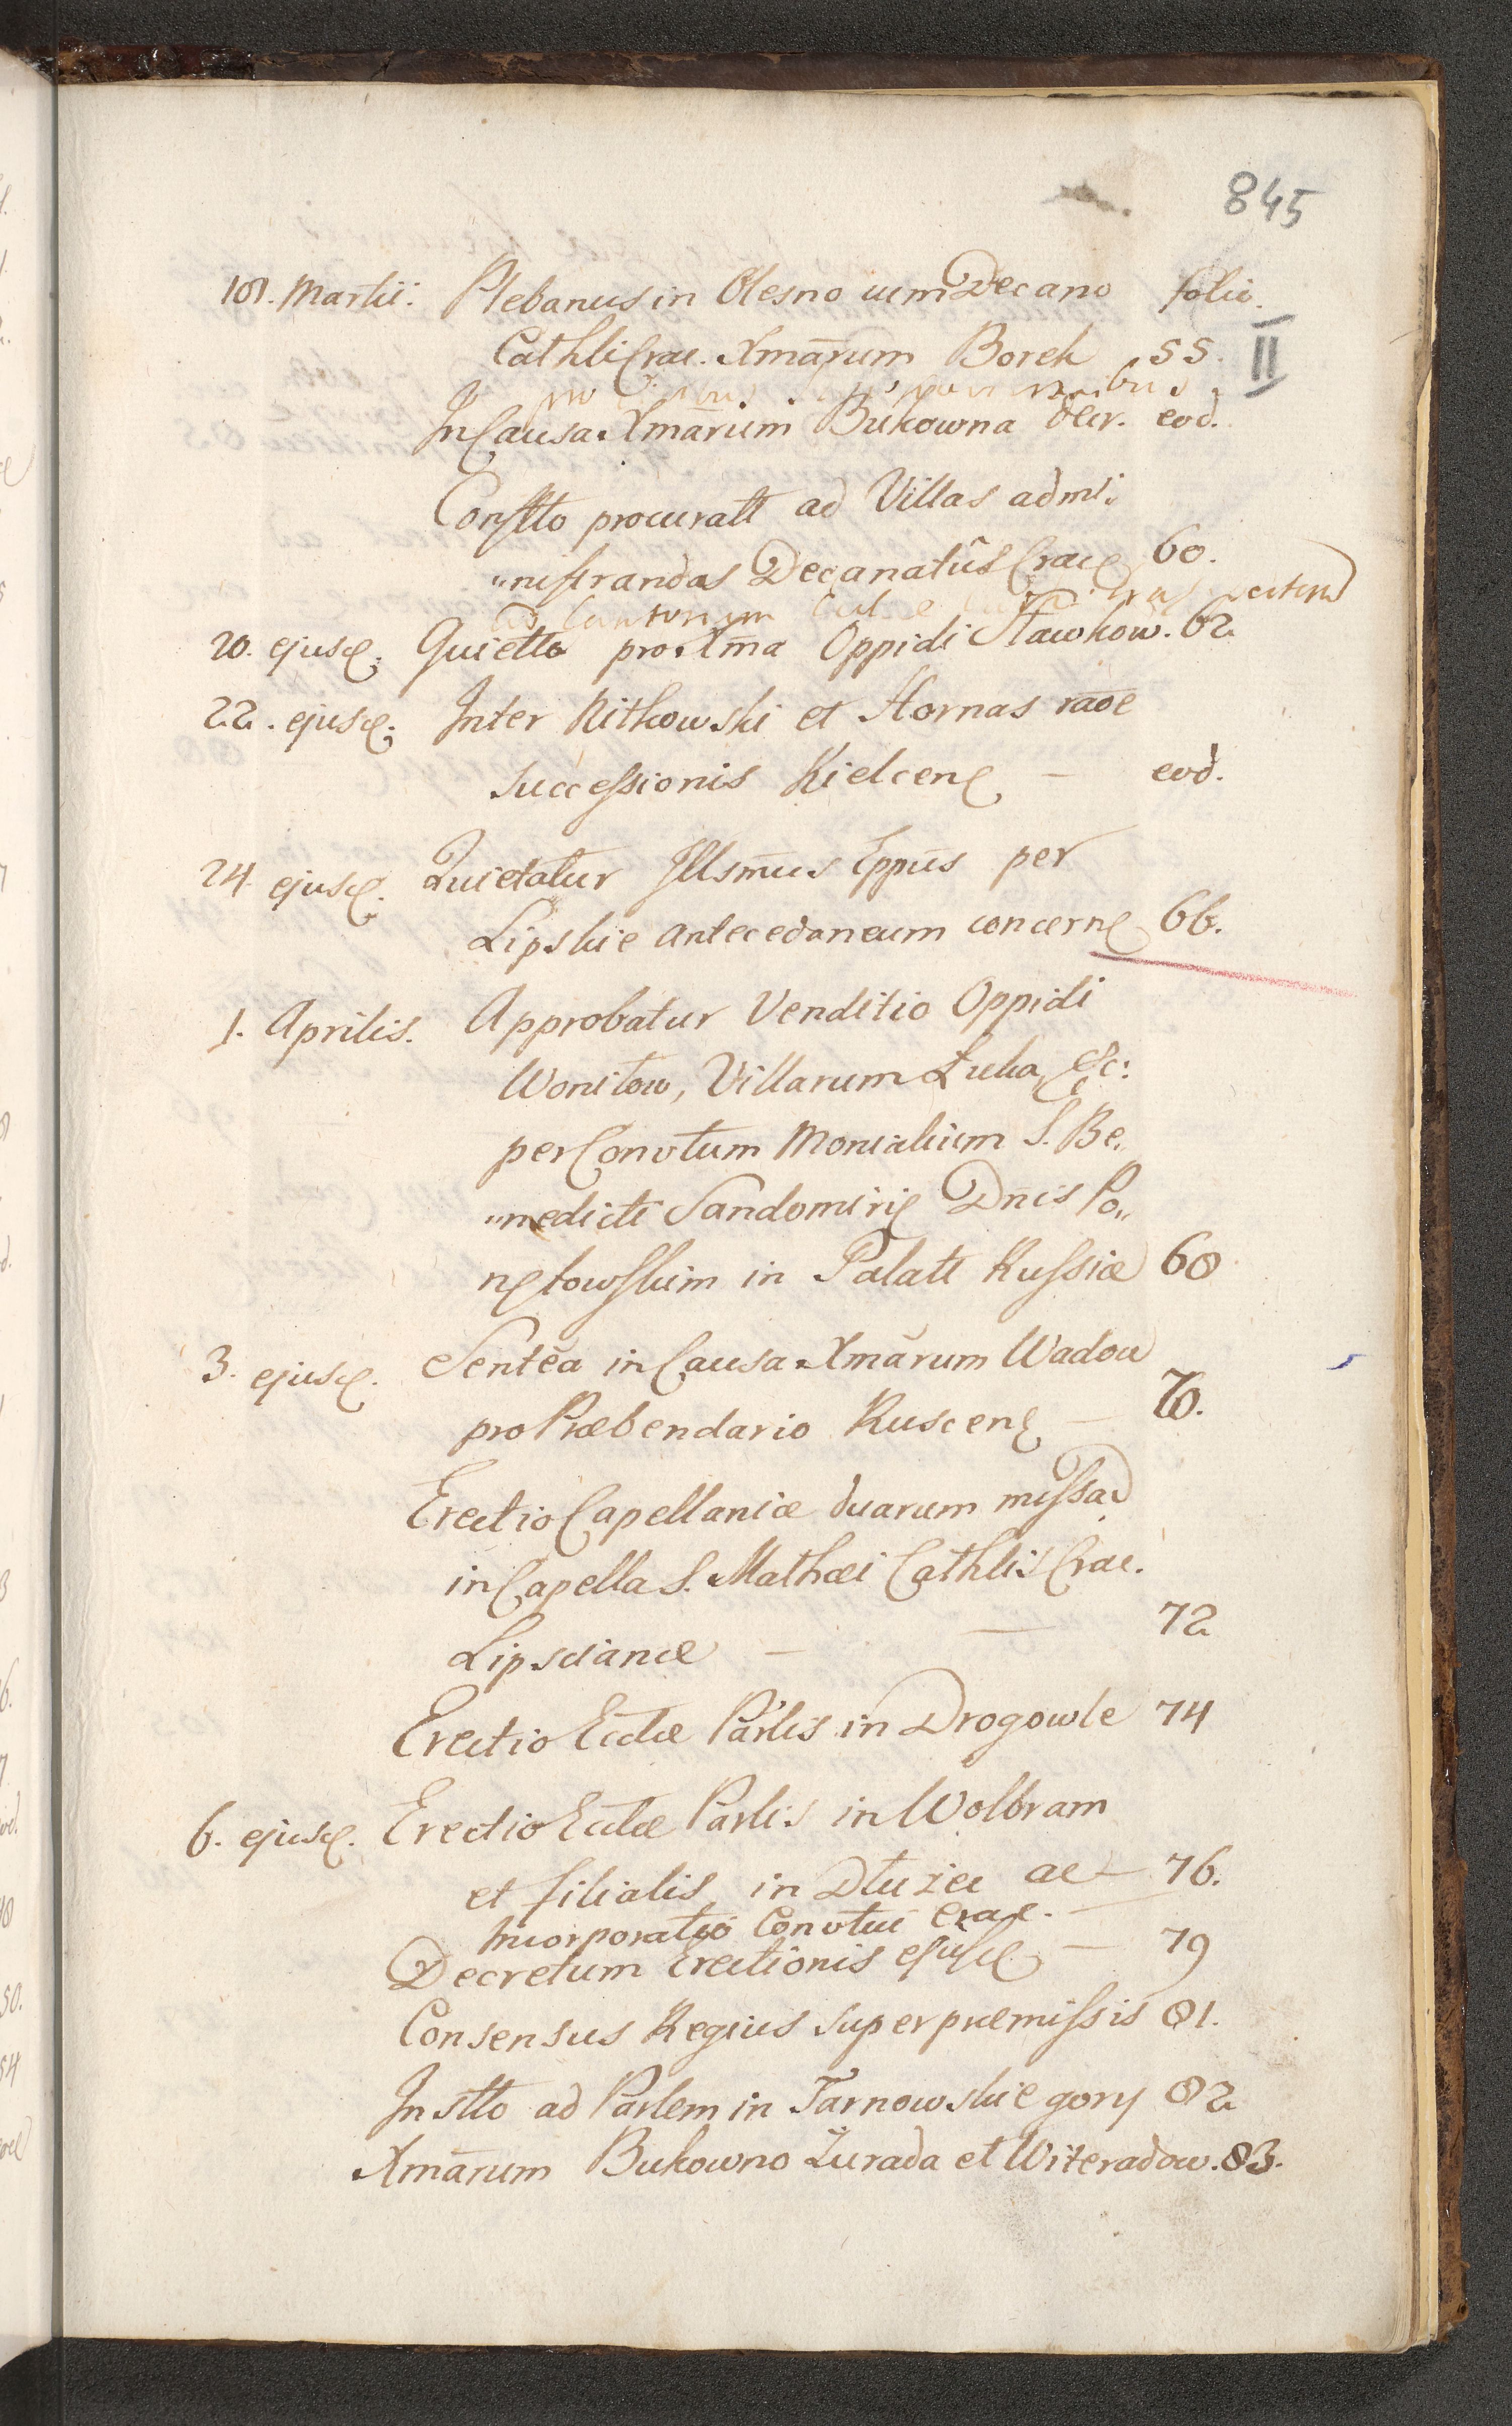 845
18. Martii. Plebanus in Olesno cum Decano folio.
Cathli Crac. Xmārum Borek 55. II
In Causa Xmārum Bukowna decr. eod.
Constto procuratt ad Villas admi:
"nistrandas Decanatûs Crac 60.
20. ejusd. Quietto pro Xma Oppidi Sławkow. 62
22. ejusd. Inter Nitkowski et Hornas raōe
successionis Kielcen — eod.
24. ejusd. Quietatur Illsmus Eppūs per
Lipskie antecedaneum concern 66.
1. Aprilis. Approbatur Venditio Oppidi
Woniłow, Villarum Łuka, &c:
per Convtum Monialium S. Be„
"nedicti Sandomiri Dnis Po„
niatowskim in Palatt Russiæ 68
3. ejusd. Sentēa in Causa Xmārum Wadow
pro Præbendario Ruscen — 70.
Erectio Capellaniæ duarum missar
in Capella S. Mathæi Cathlis Crac.
Lipscianæ — — 72
Erectio Eccl̄æ Parlis in Drogowle 74
6. ejusd. Erectio Eccl̄æ Parlis in Wolbram
et filialis in Dłużec ac — 76.
Incorporatio Convtui Crac. —
Decretum Erectionis ejusd — 79
Consensus Regius super præmissis 81.
Instto ad Parlem in Tarnowskie gory 82
Xmārum Bukowno Żurada et Witeradow. 83.